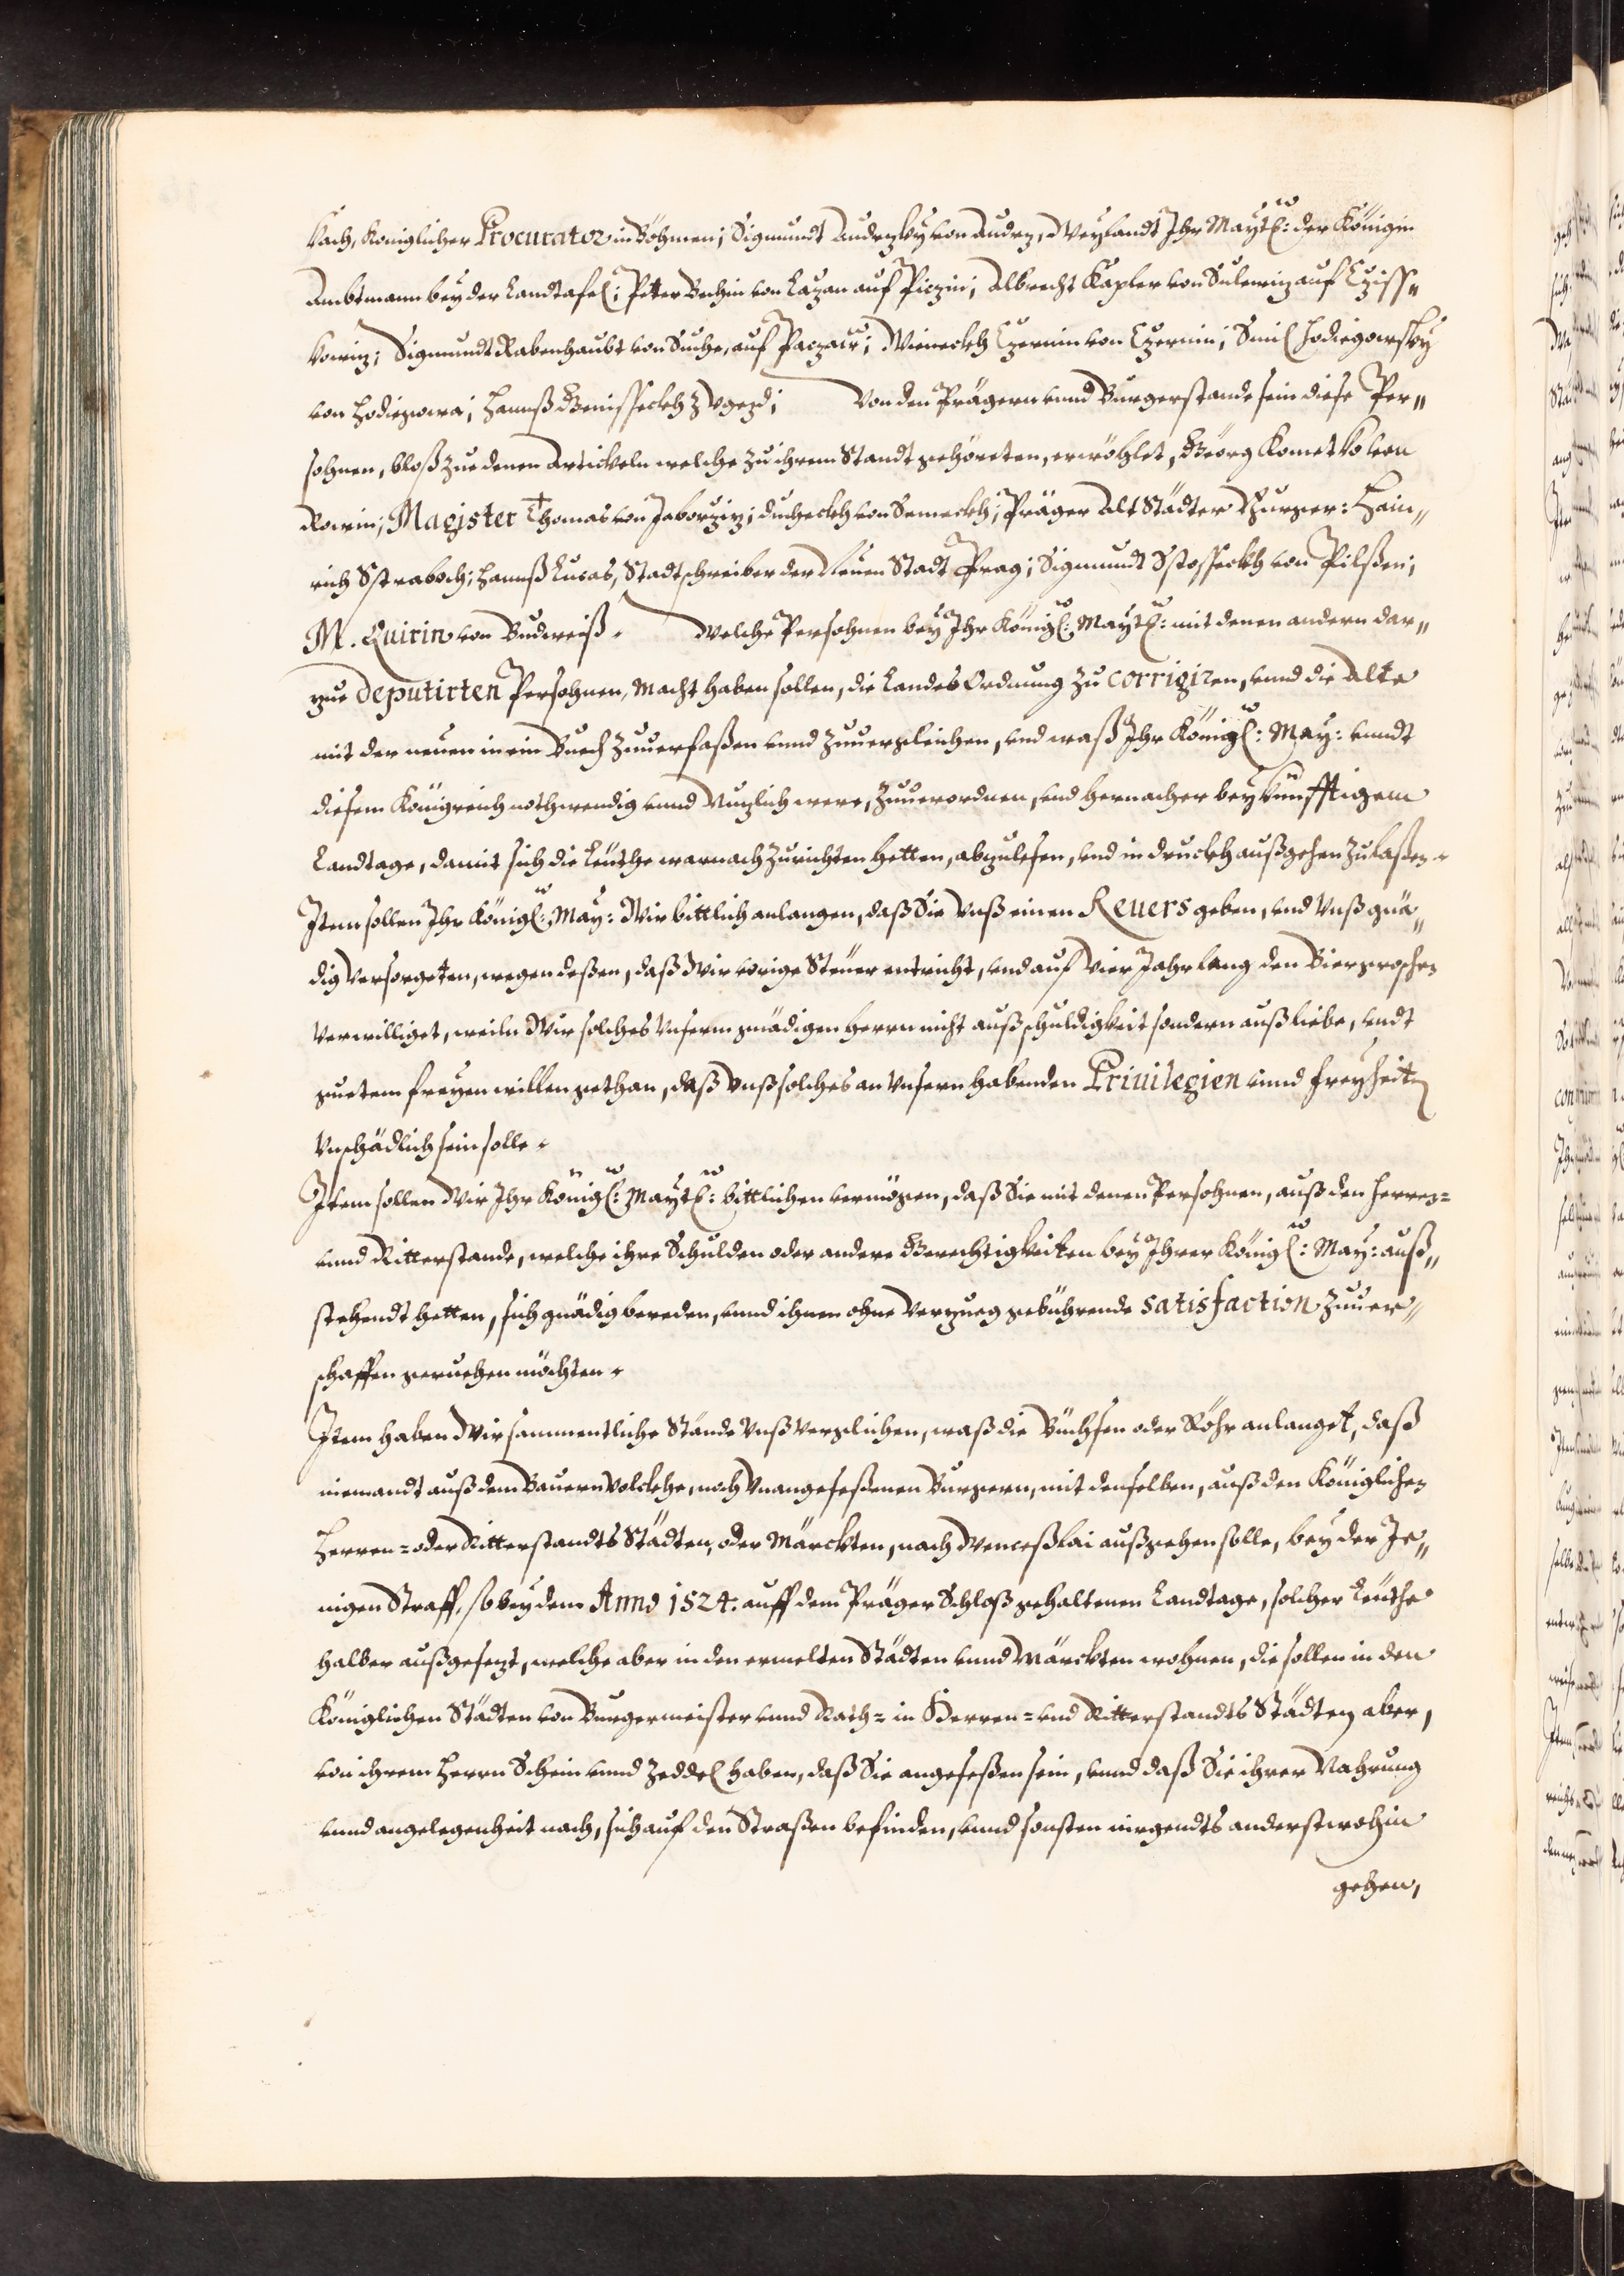 kach, Königlicher Procurator in Böhmen; Sigmundt Audrzky von Audrz, Weylandt Ihr Mayt: der Königin
Ambtmann bey der Landtafel; Peter Bechin von Lazan auf Piczin; Albrecht Kapler von Sulewiz auf Cziss„
kowiz; Sigmundt Rabenhaubt von Suche, auf Paczaw; Wieneckh Czernin von Czernin; Smil Hodiegowsky
von Hodiegowa; Hannß Beneisseckh z Vgezd; Von den Prägern vnnd Burgerstande sein diese Per„
sohnen, bloß zue denen Articteln welche zu ihrem Standt gehöreten, erwöhlet, Geörg Kometko von
Rowin; Magister Thomas von Jaborziz; Ducheckh von Semeckh; Präger Alt Städter Burger: Hein„
rich Sstraboch; Hannß Lucas, Stadtschreiber der Neuen Stadt Prag; Sigmundt Sstosseckh von Pilßen;
M. Quirin von Budweiß. Welche Persohnen bey Ihr Königl: Mayt: mit denen andern dar„
zue deputirten Persohnen, Macht haben sollen, die Landes Ordnung zu corrigiren, vnnd die Alte
mit der neuen in ein Buech zuuerfaßen vnnd zuuergleichen, vnd waß Ihr Königl: May: vnndt
diesem Königreich nothwendig vnnd Nuzlich were, zuuerordnen, vnd hernacher bey künfftigem
Landtage, damit sich die Leuthe warnach zurichten hetten, abzulesen, vnd in druckh außgehen zulaßen.
Item sollen Ihr Königl: May: Wir bittlich anlangen, daß Sie Vnß einen Reuers geben, vnd Vnß gnä„
dig versorgeten, wegen deßen, daß Wir vorige Steuer entricht, vnd auf Vier Jahr lang den Biergroschen
Verwilliget, weiln Wir solches Vnserm gnädigen Herrn nicht auß schuldigkeit sondern auß liebe, vndt
guetem freyen willen gethan, daß Vnß solches an Vnsern habenden Priuilegien vnnd freyheiten
Vnschädlich sein solle.
Item sollen Wir Ihr Königl: Mayt: bittlichen vermögen, daß Sie mit denen Persohnen, auß den Herren=
vnnd Ritterstande, welche ihre Schulden oder andere Gerechtigkeiten bey Ihrer Königl: May: auß„
stehendt hetten, sich gnädig bereden, vnnd ihnen ohne Verzueg gebührende satisfaction zuuer„
schaffen geruehen möchten.
Item haben Wir sammentliche Stände Vnß Verglichen, waß die Büchsen oder Röhr anlanget, daß
niemandt auß dem Bauern Volckhe, noch Vnangeseßenen Burgern, mit denselben, auß den Königlichen
Herren= oder Ritterstandts Städten, oder Märckten, nach Wenceßlai außgehen solle, bey der Je„
nigen Straff, so bey dem Anno 1524. auff dem Präger Schloß gehaltenen Landtage, solcher Leuthe
halber außgesezt, welche aber in den ermelten Städten vnnd Märckten wohnen, die sollen in den
Königlichen Städten von Burgermeister vnnd Rath= in Herren= vnd Ritterstandts Städten aber,
von ihrem Herrn Schein vnnd Zeddel haben, daß Sie angeseßen sein, vnnd daß Sie ihrer Nahrung
vnnd angelegenheit nach, sich auf den Straßen befinden, vnnd sonsten nirgendts anderstwohin
gehen,